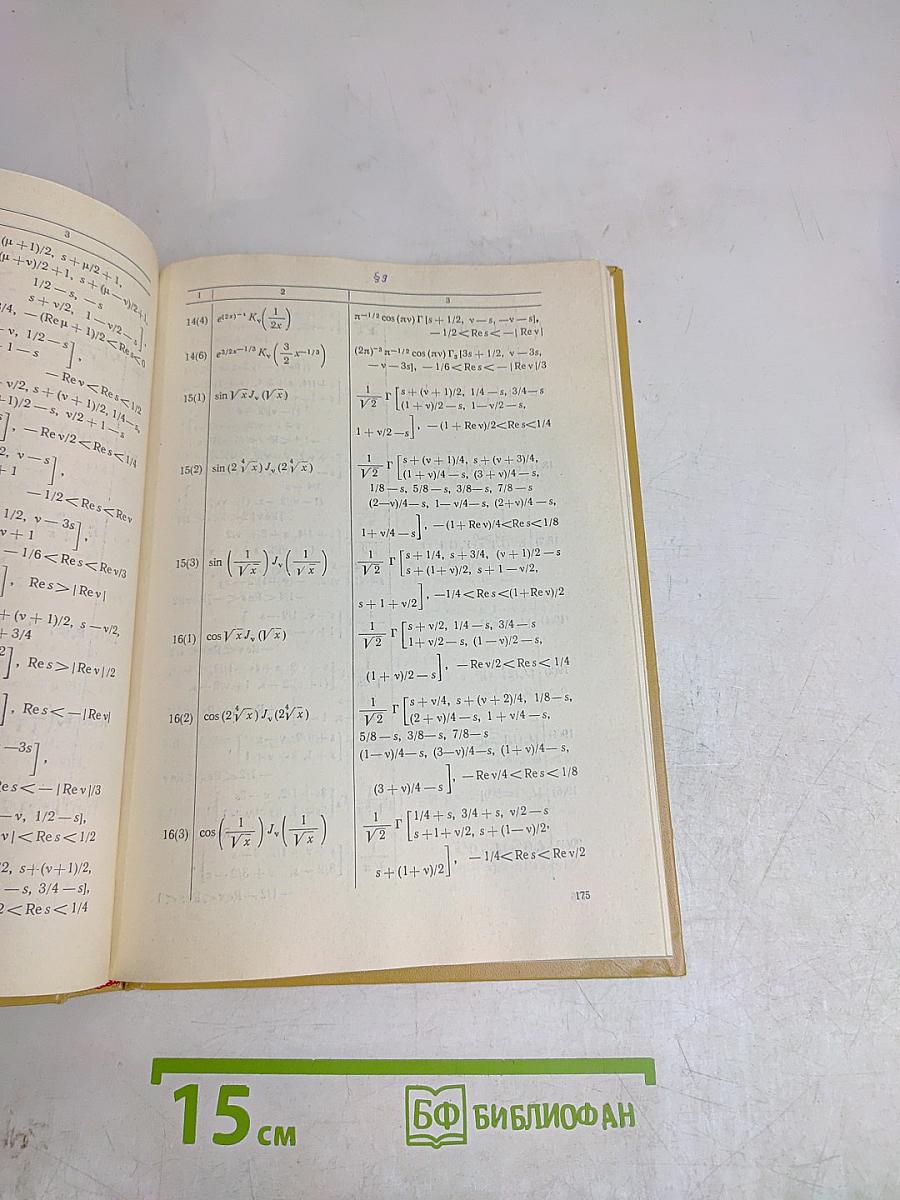 3
(μ+1)/2, s+μ/2+1,
(μ+ν)/2+1, s+(μ−ν)/2+1,
1/2−s, −s
s+ν/2, 1−ν/2−s],
3/4, −(Re μ+1)/2<Re s<0
−ν, 1/2−s],
+1−s
−Re ν<Re s<1/2
ν/2, s+(ν+1)/2, 1/4−s,
+1)/2−s, ν/2+1−s
], −Re ν/2<Re s<1/4
2, ν−s],
+1
−1/2<Re s<Re ν
1/2, ν−3s],
ν+1
−1/6<Re s<Re ν/3
], Re s>|Re ν|
+(ν+1)/2, s−ν/2,
+3/4
2], Re s>|Re ν|/2
], Re s<−|Re ν|
−3s],
Re s<−|Re ν|/3
−ν, 1/2−s],
ν|<Re s<1/2
/2, s+(ν+1)/2,
−s, 3/4−s],
2<Re s<1/4
§9
1 2 3
14(4) e^{(2x)^{−1}} K_ν(1/2x) π^{−1/2} cos(πν) Γ[s+1/2, ν−s, −ν−s],
−1/2<Re s<−|Re ν|
14(6) e^{3/2x^{−1/3}} K_ν(3/2 x^{−1/3}) (2π)^{−3} π^{−1/2} cos(πν) Γ_3[3s+1/2, ν−3s,
−ν−3s], −1/6<Re s<−|Re ν|/3
15(1) sin √x J_ν(√x) 1/√2 Γ[s+(ν+1)/2, 1/4−s, 3/4−s
(1+ν)/2−s, 1−ν/2−s,
1+ν/2−s], −(1+Re ν)/2<Re s<1/4
15(2) sin(2∜x) J_ν(2∜x) 1/√2 Γ[s+(ν+1)/4, s+(ν+3)/4,
(1+ν)/4−s, (3+ν)/4−s,
1/8−s, 5/8−s, 3/8−s, 7/8−s
(2−ν)/4−s, 1−ν/4−s, (2+ν)/4−s,
1+ν/4−s], −(1+Re ν)/4<Re s<1/8
15(3) sin(1/√x) J_ν(1/√x) 1/√2 Γ[s+1/4, s+3/4, (ν+1)/2−s
s+(1+ν)/2, s+1−ν/2,
s+1+ν/2], −1/4<Re s<(1+Re ν)/2
16(1) cos √x J_ν(√x) 1/√2 Γ[s+ν/2, 1/4−s, 3/4−s
1+ν/2−s, (1−ν)/2−s,
(1+ν)/2−s], −Re ν/2<Re s<1/4
16(2) cos(2∜x) J_ν(2∜x) 1/√2 Γ[s+ν/4, s+(ν+2)/4, 1/8−s,
(2+ν)/4−s, 1+ν/4−s,
5/8−s, 3/8−s, 7/8−s
(1−ν)/4−s, (3−ν)/4−s, (1+ν)/4−s,
(3+ν)/4−s], −Re ν/4<Re s<1/8
16(3) cos(1/√x) J_ν(1/√x) 1/√2 Γ[1/4+s, 3/4+s, ν/2−s
s+1+ν/2, s+(1−ν)/2,
s+(1+ν)/2], −1/4<Re s<Re ν/2
175
15 см
БФ БИБЛИОФАН